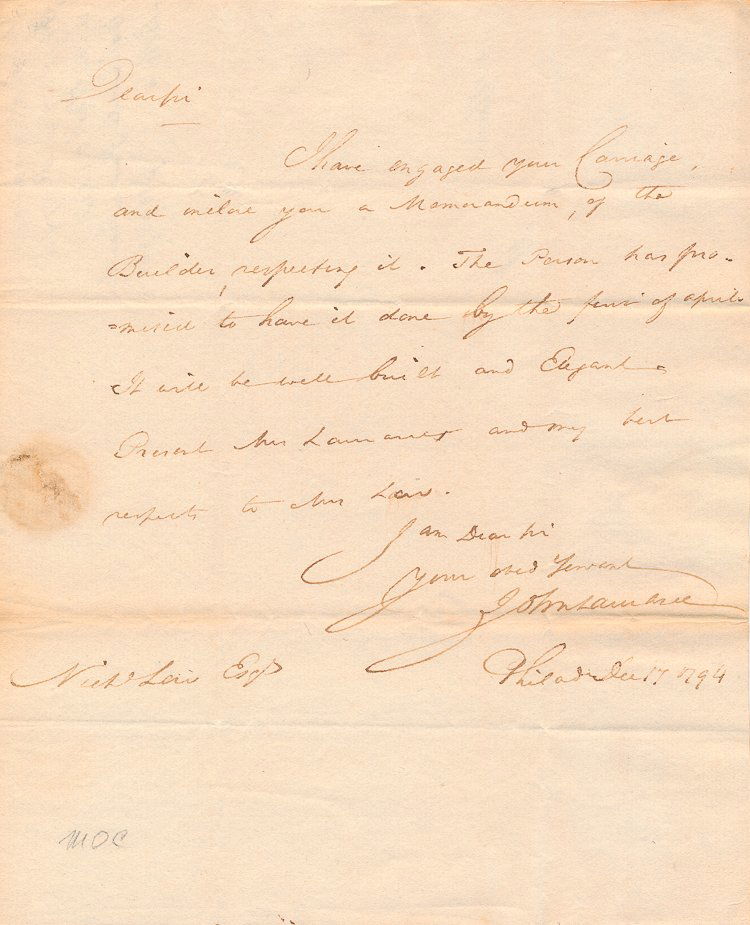 Dear sir
I have engaged your Carriage,
and inclose you a Memorandum, of the
Builder, respecting it. The Person has pro-
=mised to have it done by the first of april.
It will be well built and Elegant.
Present Mrs Laurance and my best
respects to Mrs Low.
I am Dear sir
Your obed Servant
John Laurance
Nichs Low Esqr
Philada Dec 17 1794
MOC